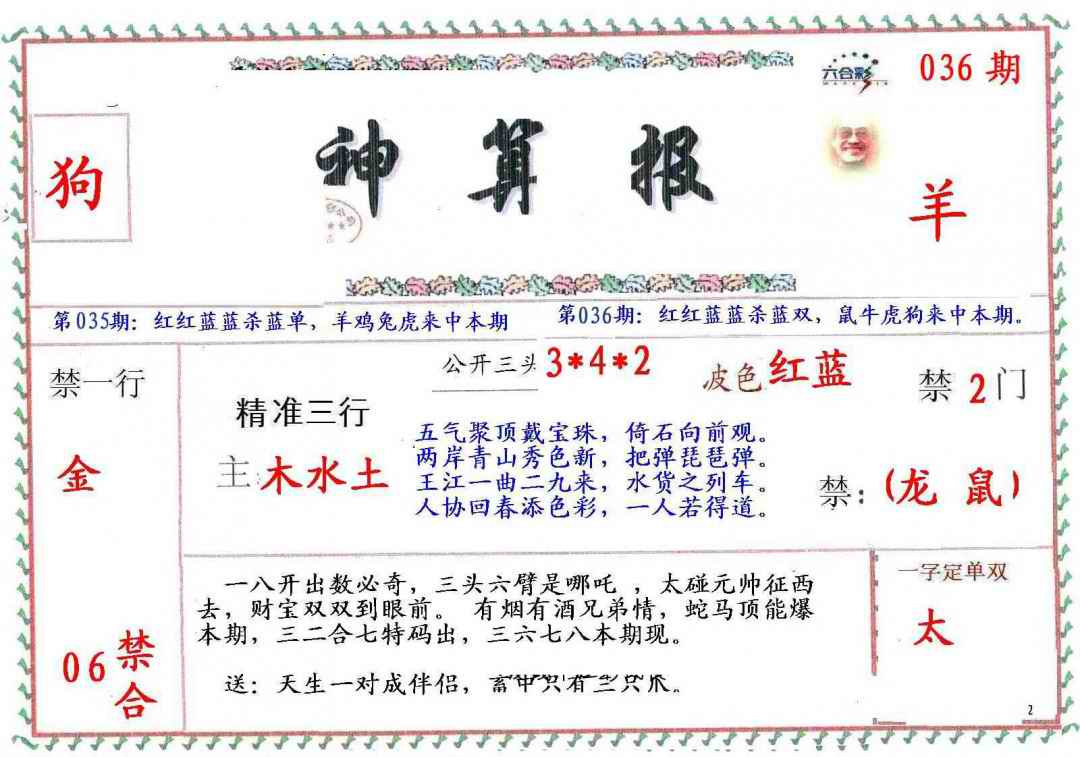 六合彩
036 期
狗
神算报
羊
第035期：红红蓝蓝杀蓝单，羊鸡兔虎来中本期
第036期：红红蓝蓝杀蓝双，鼠牛虎狗来中本期。
禁一行
金
06 禁合
精准三行
主：木水土
公开三头 3*4*2
波色 红蓝
禁 2 门
禁：(龙 鼠)
五气聚顶戴宝珠，倚石向前观。
两岸青山秀色新，把弹琵琶弹。
王江一曲二九来，水货之列车。
人协回春添色彩，一人若得道。
一八开出数必奇，三头六臂是哪吒，太碰元帅征西
去，财宝双双到眼前。 有烟有酒兄弟情，蛇马顶能爆
本期，三二合七特码出，三六七八本期现。
送：天生一对成伴侣，
一字定单双
太
2